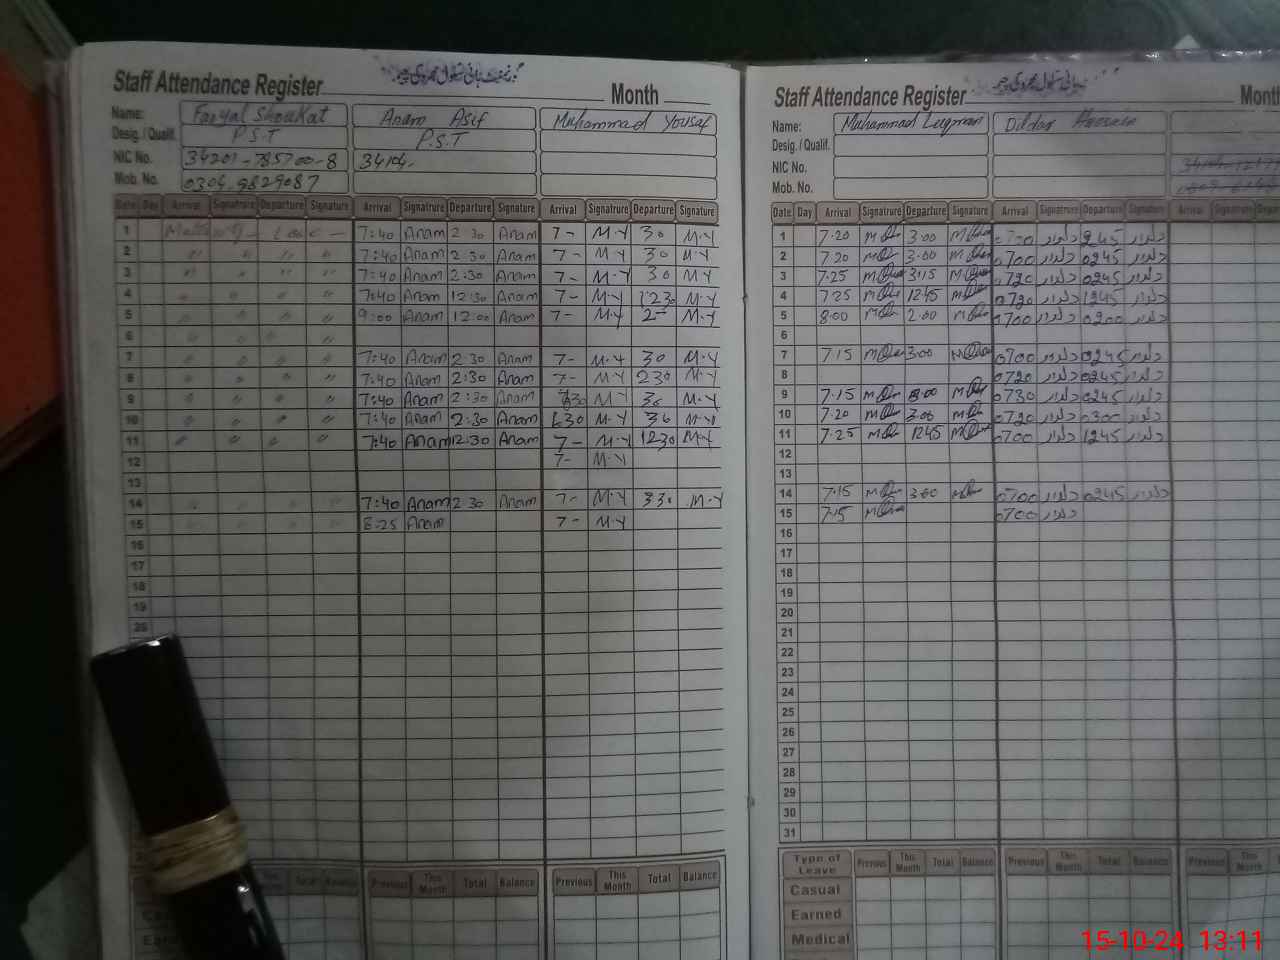 Staff Attendance Register
Month
Name: Faryal Shoukat Anam Asif Muhammad Yousaf
Desig. / Qualif. P.S.T P.S.T
NIC No. 34201-785700-8 34104.
Mob. No. 0304.9829087
Date Day Arrival Signature Departure Signature Arrival Signatrure Departure Signature Arrival Signatrure Departure Signature
1 Leave 7:40 Anam 2:30 Anam 7- M.Y 30 M.Y
2 " " " " 7:40 Anam 2:30 Anam 7- M.Y 30 M.Y
3 " " " " 7:40 Anam 2:30 Anam 7- M.Y 30 M.Y
4 " " " " 7:40 Anam 12:30 Anam 7- M.Y 1230 M.Y
5 " " " " 9:00 Anam 12:00 Anam 7- M.Y 2- M.Y
6 " " " "
7 " " " " 7:40 Anam 2:30 Anam 7- M.Y 30 M.Y
8 " " " " 7:40 Anam 2:30 Anam 7- M.Y 230 M.Y
9 " " " " 7:40 Anam 2:30 Anam 30 M.Y 30 M.Y
10 " " " " 7:40 Anam 2:30 Anam 630 M.Y 30 M.Y
11 " " " " 7:40 Anam 12:30 Anam 7- M.Y 1230 M.Y
12 7- M.Y
13
14 7:40 Anam 2:30 Anam 7- M.Y 330 M.Y
15 8:25 Anam 7- M.Y
16
17
18
19
20
Previous This Month Total Balance Previous This Month Total Balance
Staff Attendance Register
Name: Muhammad Luqman Dildar Hussain
Desig. / Qualif.
NIC No.
Mob. No.
Date Day Arrival Signatrure Departure Signature Arrival Signatrure Departure Signature
1 7.20 3.00 0700 دلدار 0245 دلدار
2 7.20 3.00 0700 دلدار 0245 دلدار
3 7.25 3.15 0720 دلدار 0245 دلدار
4 7.25 1245 0720 دلدار 1245 دلدار
5 8.00 2.00 0700 دلدار 0200 دلدار
6
7 7.15 3.00 0700 دلدار 0245 دلدار
8 0720 دلدار 0245 دلدار
9 7.15 3.00 0730 دلدار 0245 دلدار
10 7.20 3.00 0720 دلدار 0300 دلدار
11 7.25 1245 0700 دلدار 1245 دلدار
12
13
14 7.15 3.00 0700 دلدار 0245 دلدار
15 7.15 0700 دلدار
16
17
18
19
20
21
22
23
24
25
26
27
28
29
30
31
Type of Leave Previous This Month Total Balance Previous This Month Total Balance Previous This Month
Casual
Earned
Medical
15-10-24 13:11